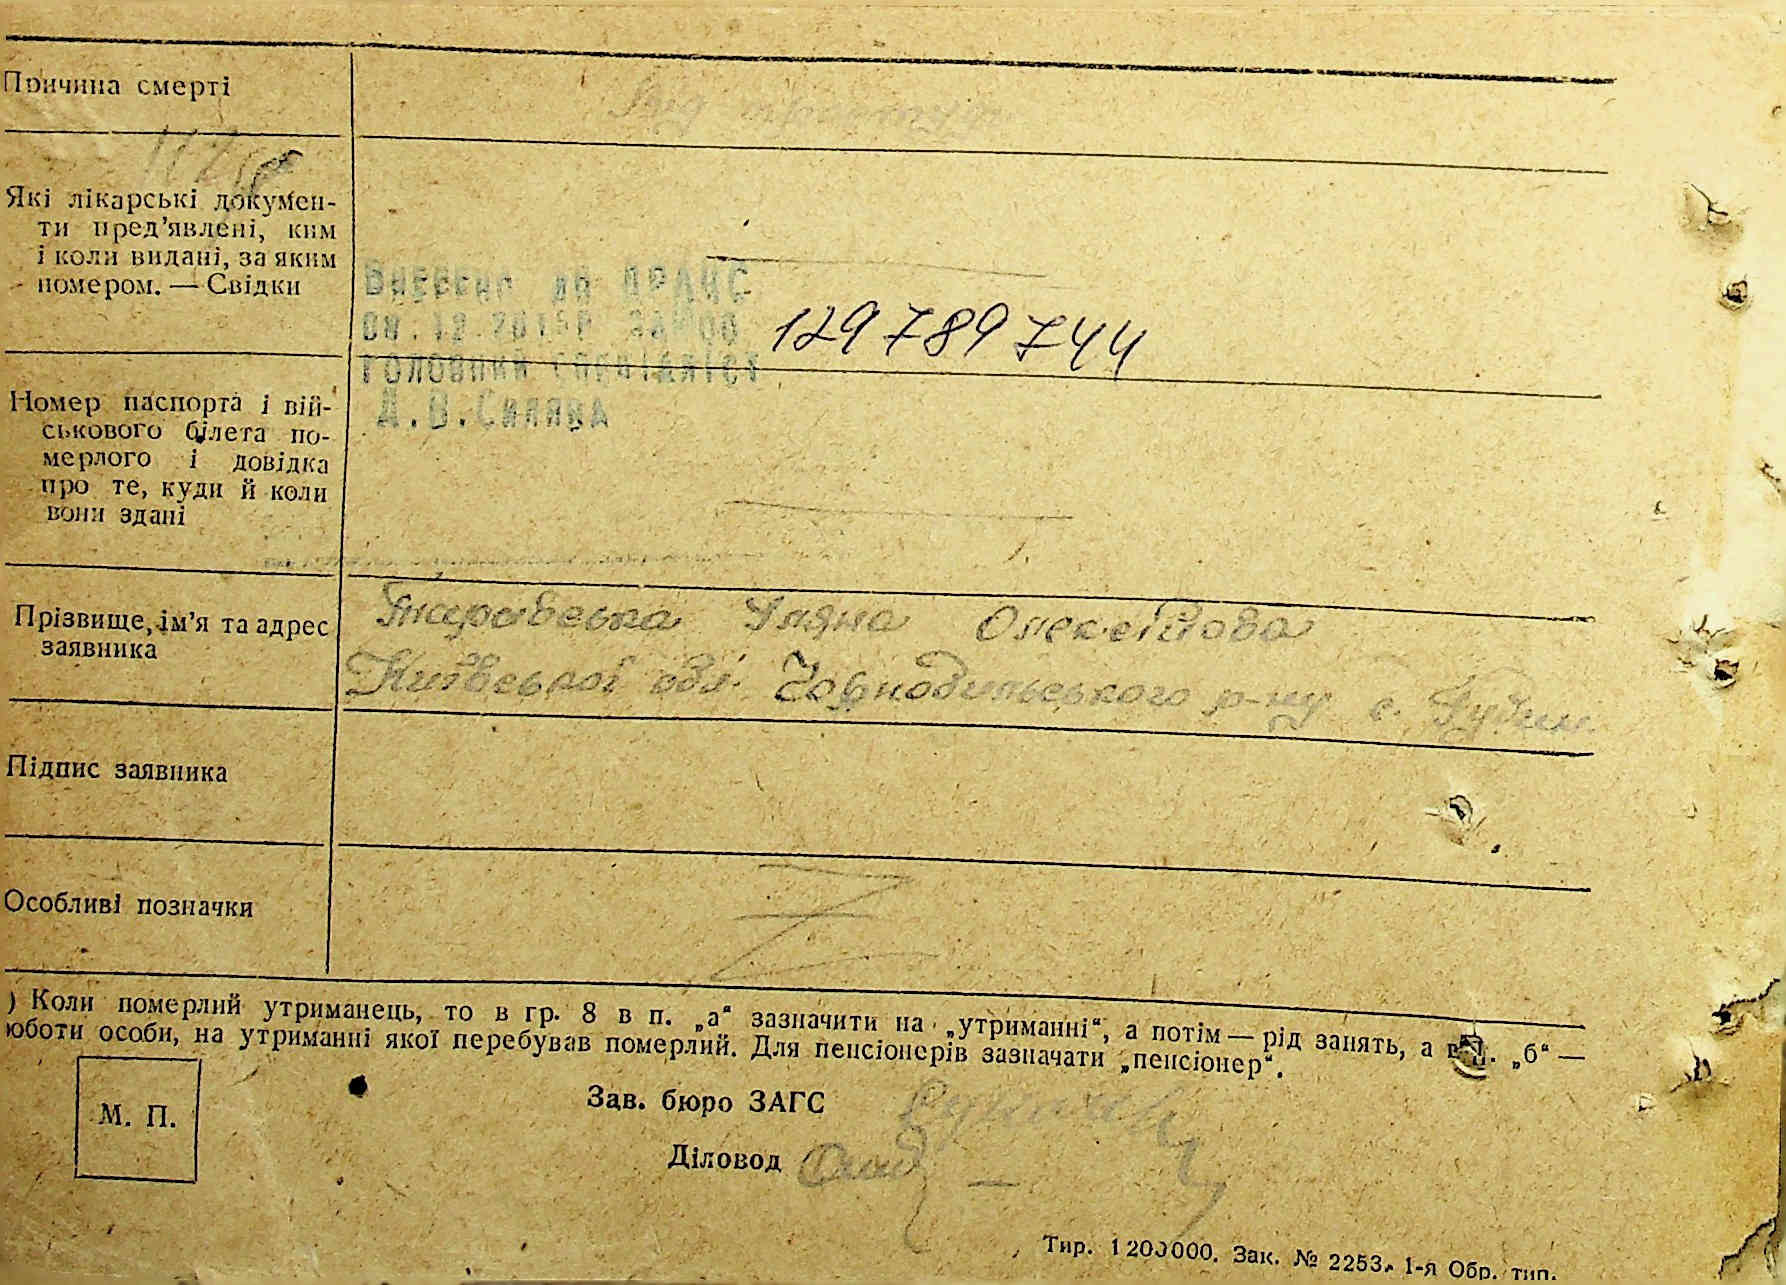 Причина смерті
Від
Які лікарські докумен-
ти пред’явлені, ким
і коли видані, за яким
номером. — Свідки
Внесено до ДРАЦС
08.12.201
129789744
Головний спеціаліст
Номер паспорта і вій-
ськового білета по-
мерлого і довідка
про те, куди й коли
вони здані
Прізвище, ім’я та адрес
заявника
Уляна
Київської обл. Чорнобильського р-ну с.
Підпис заявника
Особливі позначки
) Коли померлий утриманець, то в гр. 8 в п. „а“ зазначити на „утриманні“, а потім — рід занять, а в п. „б“ —
юботи особи, на утриманні якої перебував померлий. Для пенсіонерів зазначати „пенсіонер“.
М. П.
Зав. бюро ЗАГС
Діловод
Тир. 1200000. Зак. № 2253. 1-я Обр. тип.